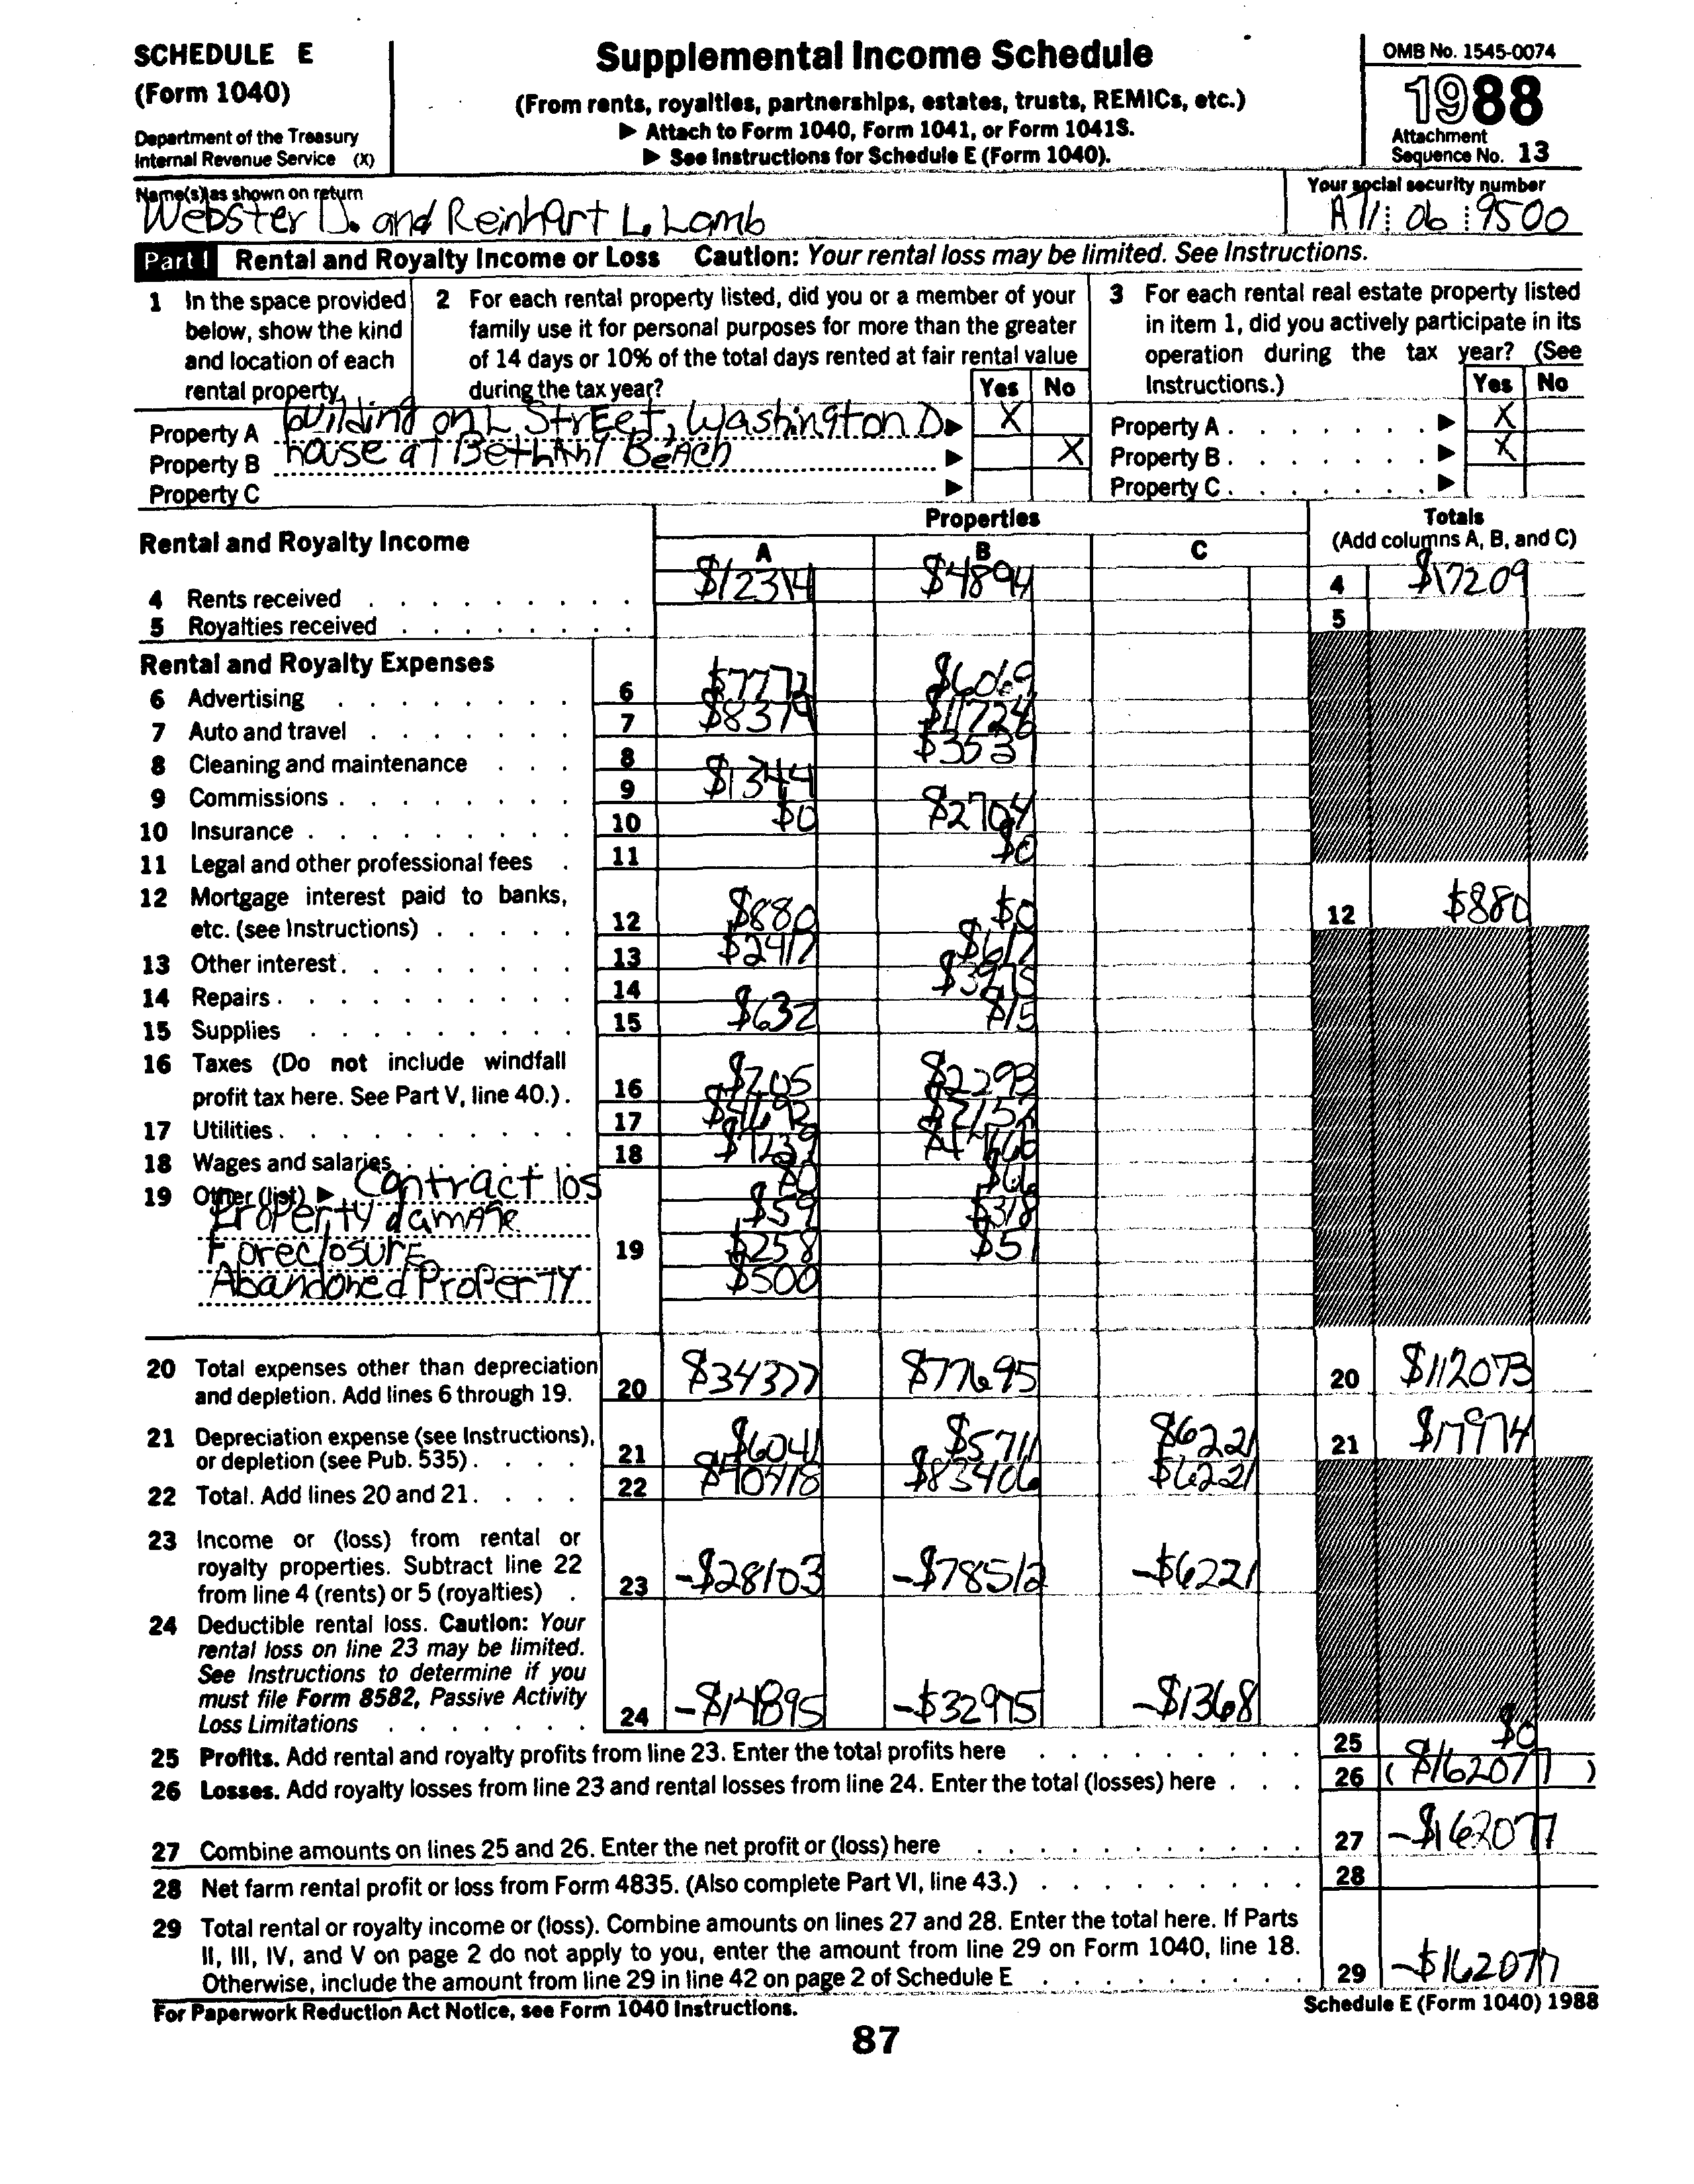 SCHEDULE E
(Form 1040)
Department of the Treasury
Internal Revenue Service (X)
Supplemental Income Schedule
(From rents, royalties, partnerships, estates, trusts, REMICs, etc.)
▶ Attach to Form 1040, Form 1041, or Form 1041S.
▶ See Instructions for Schedule E (Form 1040).
OMB No. 1545-0074
1988
Attachment
Sequence No. 13
Name(s) as shown on return
Webster D. and Reinhart L. Lamb
Your social security number
A71 06 9500
Part I Rental and Royalty Income or Loss Caution: Your rental loss may be limited. See Instructions.
1 In the space provided
below, show the kind
and location of each
rental property.
2 For each rental property listed, did you or a member of your
family use it for personal purposes for more than the greater
of 14 days or 10% of the total days rented at fair rental value
during the tax year?
Yes No
3 For each rental real estate property listed
in item 1, did you actively participate in its
operation during the tax year? (See
Instructions.)
Yes No
Property A building on L Street, Washington D ▶ X
Property A ▶ X
Property B house at Bethany Beach ▶ X
Property B ▶ X
Property C ▶
Property C ▶
Rental and Royalty Income
Properties
A B C
Totals
(Add columns A, B, and C)
4 Rents received $12314 $4894 4 $17209
5 Royalties received 5
Rental and Royalty Expenses
6 Advertising 6 $7772 $6069
7 Auto and travel 7 $8374 $11726
8 Cleaning and maintenance 8 $3531
9 Commissions 9 $1344
10 Insurance 10 $0 $2704
11 Legal and other professional fees 11 $0
12 Mortgage interest paid to banks,
etc. (see Instructions) 12 $880 $0 12 $880
13 Other interest 13 $2417 $617
14 Repairs 14 $3975
15 Supplies 15 $632 $15
16 Taxes (Do not include windfall
profit tax here. See Part V, line 40.) 16 $205 $2293
17 Utilities 17 $4692
18 Wages and salaries 18 $1239
19 Other (list) ▶ Contract los $0 $66
Property damage $59 $318
Foreclosure 19 $258 $51
Abandoned Property $500
20 Total expenses other than depreciation
and depletion. Add lines 6 through 19. 20 $34377 $77695 20 $112073
21 Depreciation expense (see Instructions),
or depletion (see Pub. 535) 21 $6041 $5711 $6221 21 $17974
22 Total. Add lines 20 and 21. 22 $40418 $83406 $6221
23 Income or (loss) from rental or
royalty properties. Subtract line 22
from line 4 (rents) or 5 (royalties) 23 -$28103 -$78512 -$6221
24 Deductible rental loss. Caution: Your
rental loss on line 23 may be limited.
See Instructions to determine if you
must file Form 8582, Passive Activity
Loss Limitations 24 -$14895 -$32975 -$1368
25 Profits. Add rental and royalty profits from line 23. Enter the total profits here 25 $0
26 Losses. Add royalty losses from line 23 and rental losses from line 24. Enter the total (losses) here 26 ($162077)
27 Combine amounts on lines 25 and 26. Enter the net profit or (loss) here 27 -$162077
28 Net farm rental profit or loss from Form 4835. (Also complete Part VI, line 43.) 28
29 Total rental or royalty income or (loss). Combine amounts on lines 27 and 28. Enter the total here. If Parts
II, III, IV, and V on page 2 do not apply to you, enter the amount from line 29 on Form 1040, line 18.
Otherwise, include the amount from line 29 in line 42 on page 2 of Schedule E 29 -$162077
For Paperwork Reduction Act Notice, see Form 1040 Instructions.
Schedule E (Form 1040) 1988
87